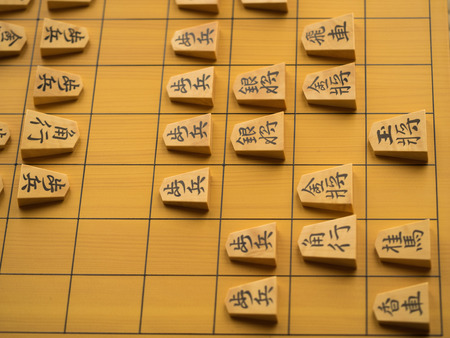 金
歩兵
歩兵
飛車
歩兵
歩兵
銀将
金将
角行
歩兵
銀将
王将
歩兵
歩兵
金将
歩兵
角行
桂馬
歩兵
香車